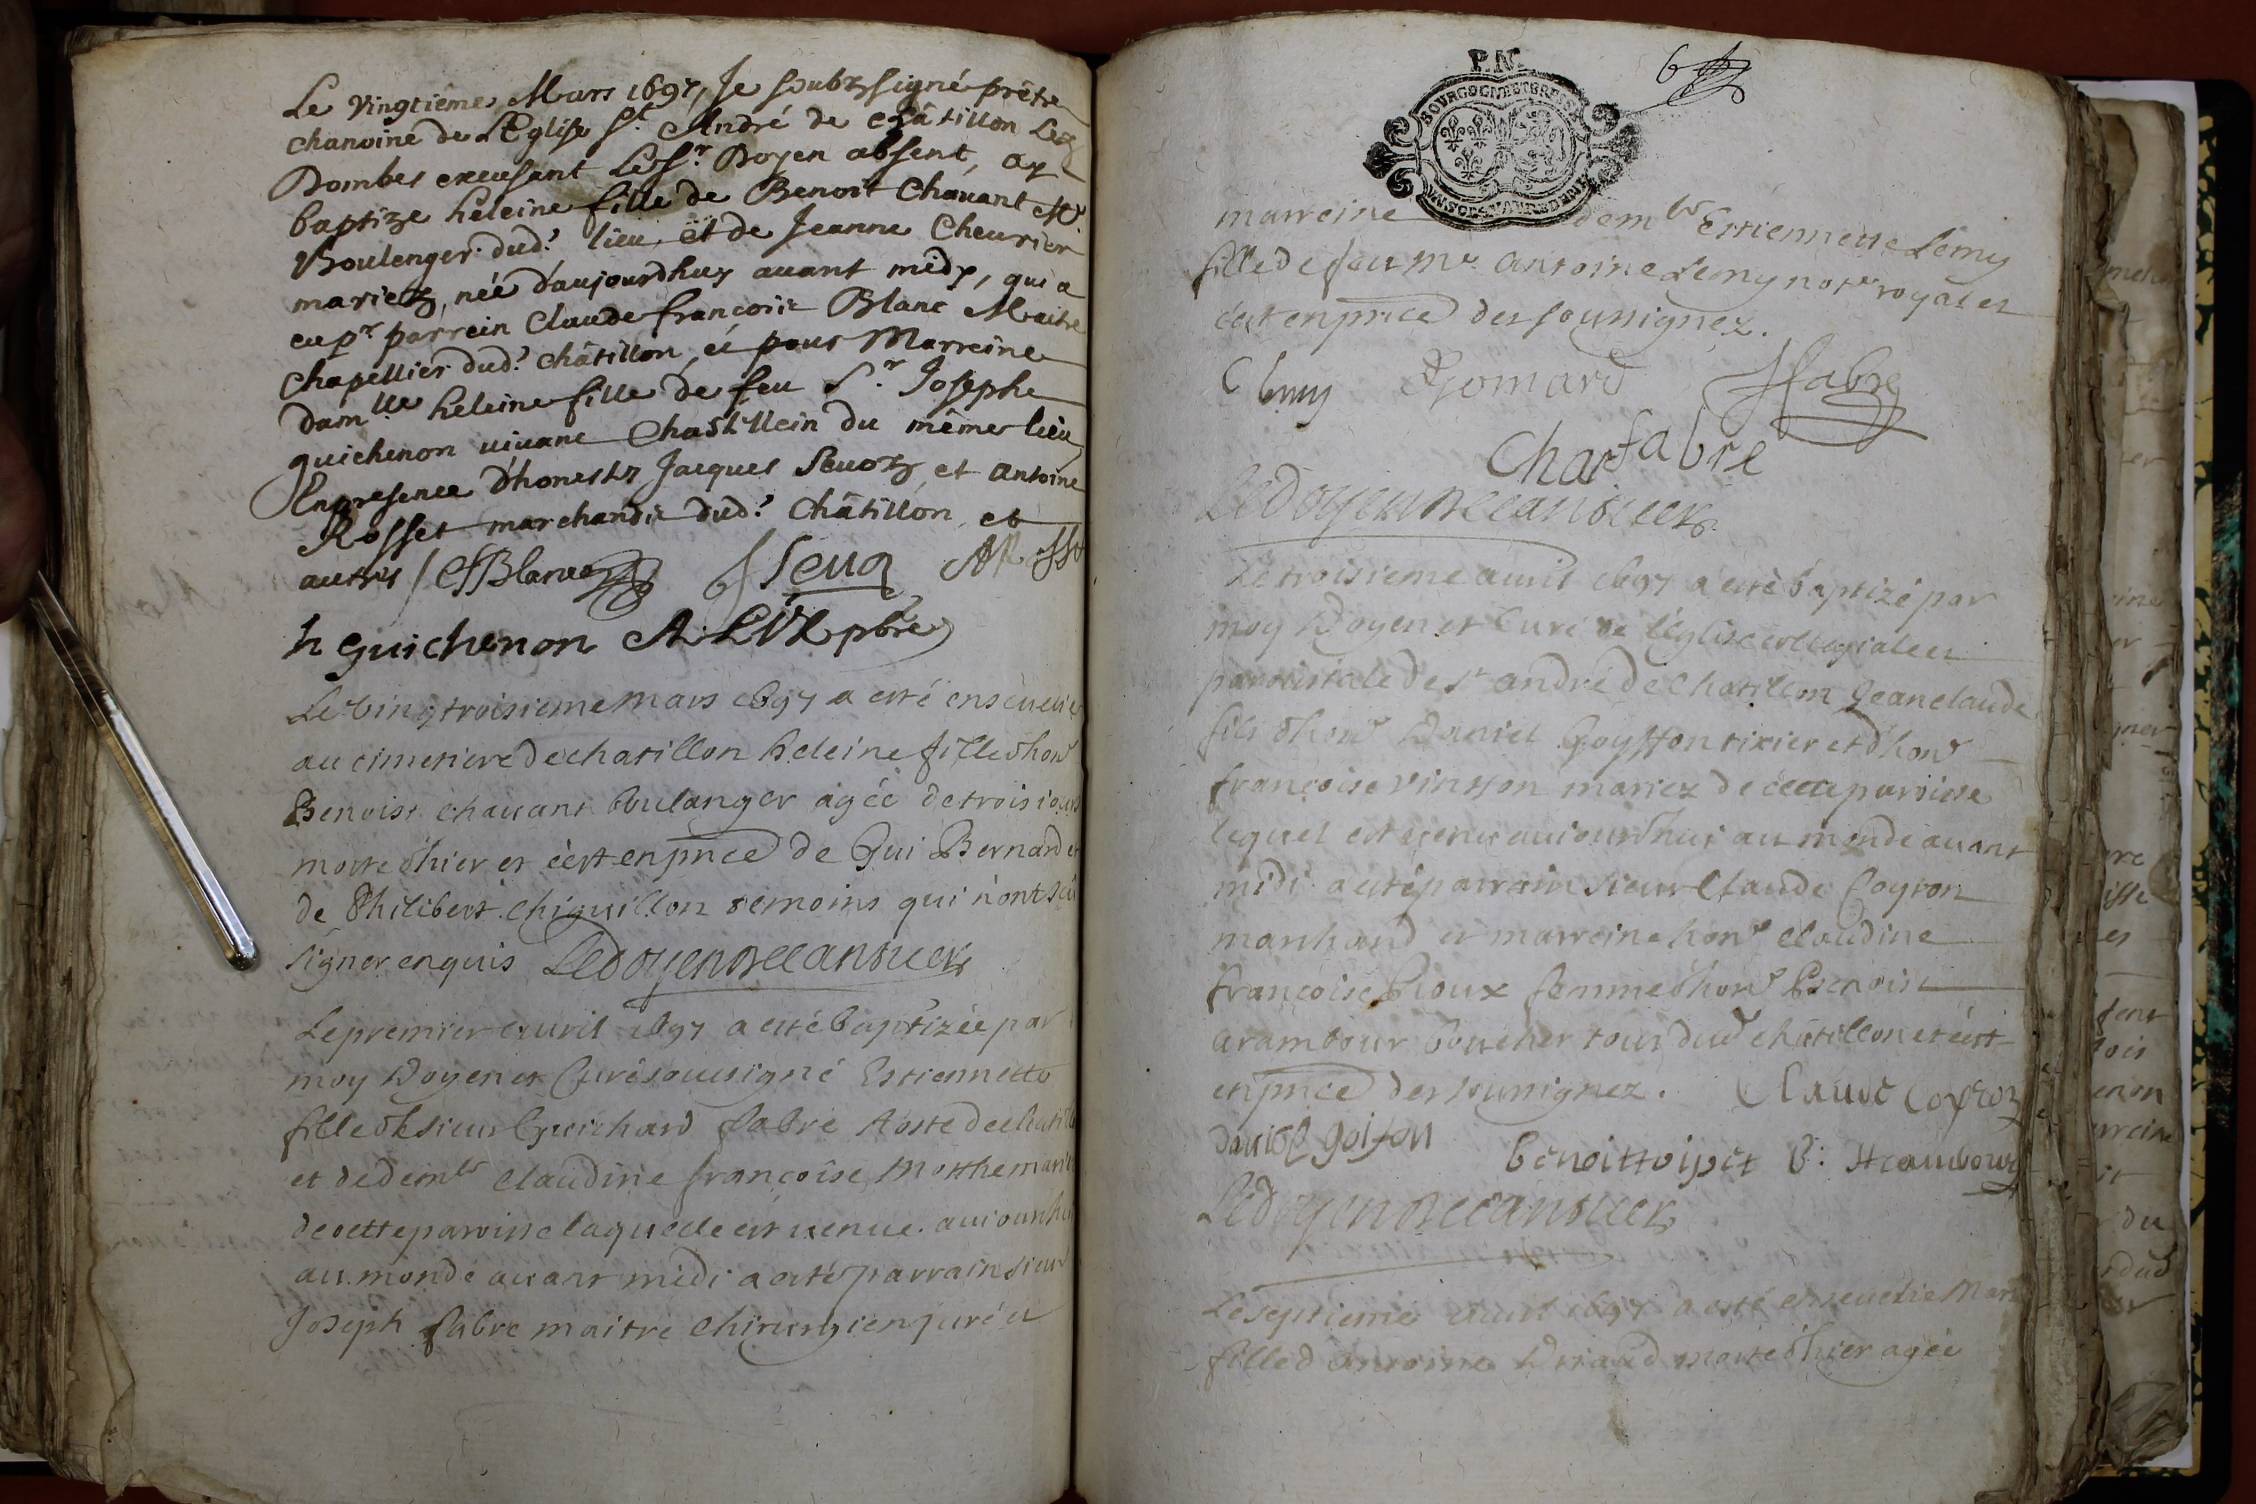 Le vingtiême Mars 1697, Je soubzsigné prêtre
chanoine de L'Eglise St. André de châtillon Lez
Dombes excusant Le Sr. Doyen absent, ay
baptize heleine fille de Benoît Chavant Me.
Boulenger dud.t lieu, et de Jeanne Cheurier
mariez, née d'aujourdhuy auant midy, qui a
eu pr. parrein Claude françois Blanc Maitre
Chapellier dud.t châtillon, et pour Marreine
dam.lle heleine fille de feu Sr. Josephe
guichenon uiuant Chastellein du même lieu,
En presence d'honestes Jacques Seuoz, et antoine
Rosset marchands dud.t châtillon, et
autres / CfBlanc J Seuo ARosset
h guichenon A. pbre
Le vingtroisieme mars 1697 a esté enseuelie
au cimetiere de chatillon heleine fille d'hon.e
Benoist chauant boulanger agée de trois iours
morte d'hier et c'est en pnce de Gui Bernard et
de Philibert Chiguillon temoins qui n'ont sçu
signer enquis Le doyen
Le premier auril 1697 a esté baptizée par
moy Doyen et Curé soussigné Estiennette
fille de sieur Guichard fabre hoste de chatillon
et de dem.le Claudine françoise Motthe mariez
de cette paroisse laquelle est uenue auiourdhui
au monde auant midi a esté parrain sieur
Joseph fabre maitre chirurgien juré et
P.N.
BOURGOGNE ET BRESSE
marreine dem.le Estiennette Lemy
fille de feu Me. antoine Lemy not.re royal et
c'est en pnce des soussignez.
E lemy Gomard JFabre
Char fabre
Le doyen
Le troisieme auril 1697 a esté baptizé par
moy Doyen et Curé de l'Eglise collegiale et
paroissiale de St andré de Chatillon Jean claude
fils d'hon.e Daniel Goyffon tixier et d'hon.e
françoise vinsson mariez de cette paroisse
lequel est uenu auiourdhui au monde auant
midi a esté parrain sieur Claude Coyron
marchand et marreine hon.e claudine
françoise femme d'hon.e Benoist
arambour boucher tous dud chatillon et c'est
en pnce des soussignez. Claude
daniel goifon benoit B:
Le doyen
Le septieme auril 1697 a esté enseuelie Marie
fille d'antoine morte d'hier agée